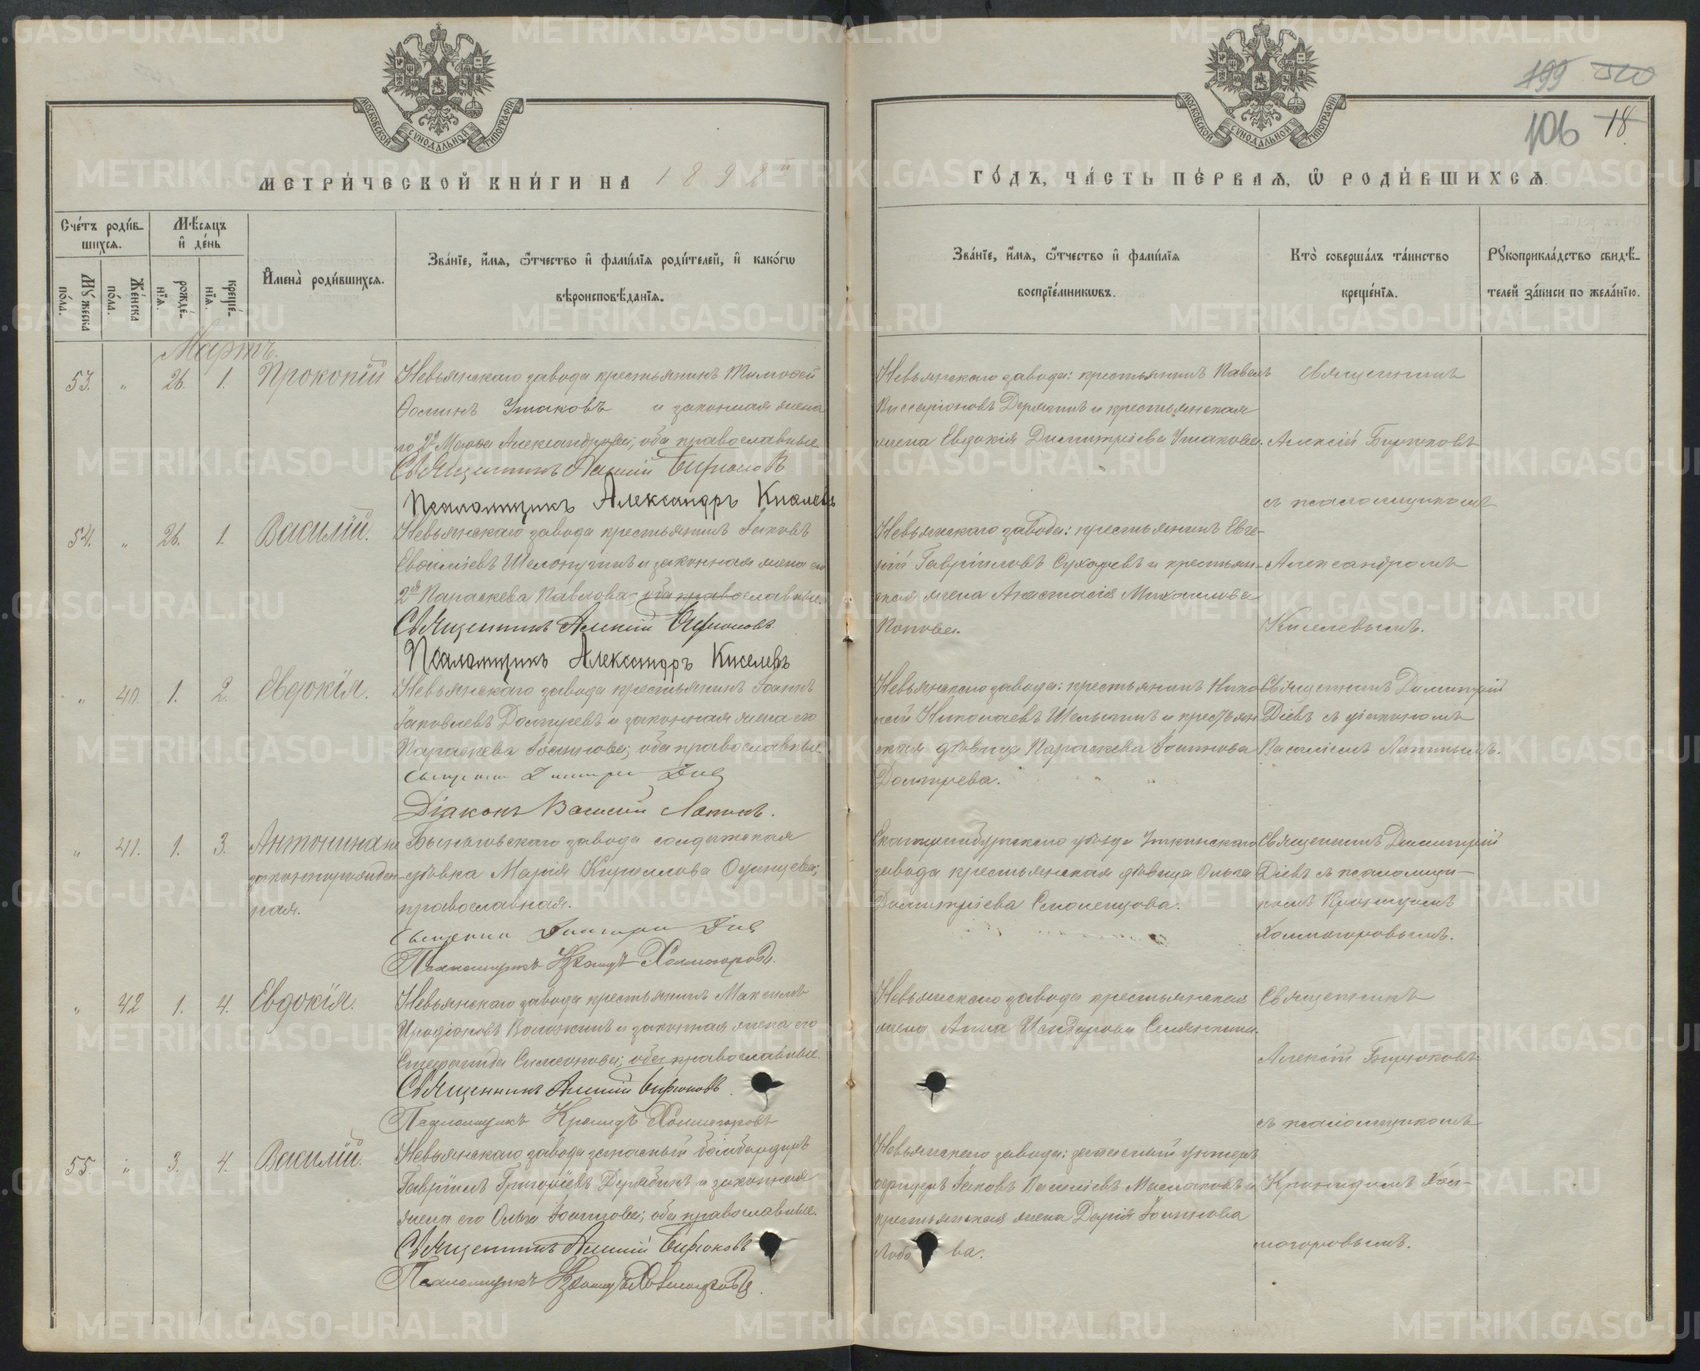 199 500
106 18
МЕТРИ́ЧЕСКОЙ КНИ́ГИ НА 1898й
ГО́ДЪ, ЧА́СТЬ ПЕ́РВАЯ, Ѡ РОДИ́ВШИХСЯ.
Сче́тъ роди́вшихся.
Мѣ́сяцъ и де́нь
Му́жеска по́ла.
Же́нска по́ла.
рожде́нїя.
креще́нїя.
Имена̀ роди́вшихся.
Зва́нїе, и́мя, ѻ́тчество и фами́лїя роди́телей, и како́гѡ
вѣроисповѣ́данїя.
Зва́нїе, и́мя, ѻ́тчество и фами́лїя
воспрїе́мникѡвъ.
Кто̀ соверша́лъ та́инство
креще́нїя.
Рꙋкоприкла́дство свидѣ́телей за́писи по жела́нїю.
Мартъ.
53. " 26. 1. Прокопій
Невьянскаго завода крестьянинъ Тимофей
Ѳоминъ Ушаковъ и законная жена
по 2й Александрова; оба православные
Священникъ Алексій Бирюковъ
Псаломщикъ Александръ Киселевъ
Невьянскаго завода: крестьянинъ Павелъ
Виссаріоновъ и крестьянская
жена Евдокія Димитріева Ушакова.
Священникъ
Алексій Бирюковъ
съ псаломщикомъ
54. " 26. 1. Василій.
Невьянскаго завода крестьянинъ Іаковъ
и законная жена его
2я Параскева Павлова; оба православные.
Священникъ Алексій Бирюковъ.
Псаломщикъ Александръ Киселевъ
Невьянскаго завода: крестьянинъ Евге-
ній Гавріиловъ Сухаревъ и крестьян-
ская жена Анастасія Михаилова
Попова.
Александромъ
Киселевымъ.
" 40. 1. 2. Евдокія.
Невьянскаго завода крестьянинъ Іоаннъ
Іаковлевъ и законная жена его
Параскева Іоаннова; оба православные
Діаконъ Василій Лапинъ.
Невьянскаго завода: крестьянинъ Нико-
лай Николаевъ и крестьян-
ская дѣвица Параскева Іоаннова
Священникъ Димитрій
Діевъ съ діакономъ
Василіемъ Лапинымъ.
" 41. 1. 3. Антонина не-
законнорожден-
ная.
Быньговскаго завода солдатская
дѣвка Марія Кириллова Одинцева;
православная.
Псаломщикъ Кронидъ Холмогоровъ.
Екатеринбургскаго уѣзда Уткинскаго
завода крестьянская дѣвица Ольга
Димитріева Смоленцова.
Священникъ Димитрій
Діевъ съ псаломщи-
комъ Кронидомъ
Холмогоровымъ.
" 42 1. 4. Евдокія.
Невьянскаго завода крестьянинъ Максимъ
и законная жена его
Стефанида Симеонова; оба православные.
Священникъ Алексій Бирюковъ.
Псаломщикъ Кронидъ Холмогоровъ
Невьянскаго завода крестьянская
жена Анна
Священникъ
Алексій Бирюковъ
съ псаломщикомъ
55 " 3. 4. Василій.
Невьянскаго завода запасный бомбардиръ
Гавріилъ Григорьевъ и законная
жена его Ольга Іоаннова; оба православные.
Священникъ Алексій Бирюковъ
Псаломщикъ Кронидъ Холмогоровъ.
Невьянскаго завода: запасный унтеръ
офицеръ Іаковъ Василіевъ Маслаковъ и
крестьянская жена Дарія Іоаннова
Лоба ва.
Кронидомъ Хол-
могоровымъ.
METRIKI.GASO-URAL.RU